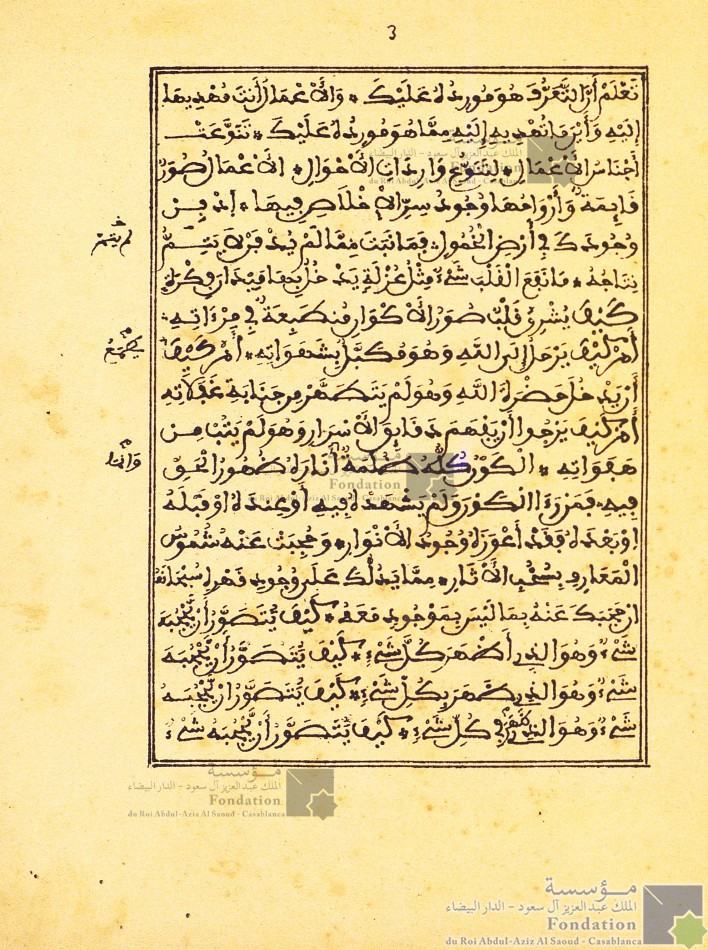 3
تَعْلَمْ أَنَّ التَّعَرُّفَ هُوَ مُورِدُهُ عَلَيْكَ * وَالْأَعْمَالُ أَنْتَ مُهْدِيهَا
إِلَيْهِ وَأَيْنَ مَا تُهْدِيهِ إِلَيْهِ مِمَّا هُوَ مُورِدُهُ عَلَيْكَ * تَنَوَّعَتْ
أَجْنَاسُ الْأَعْمَالِ * لِتَنَوُّعِ وَارِدَاتِ الْأَحْوَالِ * الْأَعْمَالُ صُوَرٌ
قَائِمَةٌ وَأَرْوَاحُهَا وُجُودُ سِرِّ الْإِخْلَاصِ فِيهَا * إِدْفِنْ
وُجُودَكَ فِي أَرْضِ الْخُمُولِ فَمَا نَبَتَ مِمَّا لَمْ يُدْفَنْ لَا يَتِمُّ
نِتَاجُهُ * مَا نَفَعَ الْقَلْبَ شَيْءٌ مِثْلُ عُزْلَةٍ يَدْخُلُ بِهَا مَيْدَانَ فِكْرَةٍ
كَيْفَ يُشْرِقُ قَلْبٌ صُوَرُ الْأَكْوَانِ مُنْطَبِعَةٌ فِي مِرْءَاتِهِ *
أَمْ كَيْفَ يَرْحَلُ إِلَى اللَّهِ وَهُوَ مُكَبَّلٌ بِشَهَوَاتِهِ * أَمْ كَيْفَ
أَنْ يَدْخُلَ حَضْرَةَ اللَّهِ وَهُوَ لَمْ يَتَطَهَّرْ مِنْ جَنَابَةِ غَفَلَاتِهِ
أَمْ كَيْفَ يَرْجُوا أَنْ يَفْهَمَ دَقَائِقَ الْأَسْرَارِ وَهُوَ لَمْ يَتُبْ مِنْ
هَفَوَاتِهِ * الْكَوْنُ كُلُّهُ ظُلْمَةٌ أَنَارَهُ ظُهُورُ الْحَقِّ
فِيهِ * فَمَنْ رَءَا الْكَوْنَ وَلَمْ يَشْهَدْهُ فِيهِ أَوْ عِنْدَهُ أَوْ قَبْلَهُ
اوْ بَعْدَهُ فَقَدْ أَعْوَزَهُ وُجُودُ الْأَنْوَارِ * وَحُجِبَتْ عَنْهُ شُمُوسُ
الْمَعَارِفِ بِسُحُبِ الْأَثَارِ * مِمَّا يَدُلُّكَ عَلَى وُجُودِ قَهْرِهِ سُبْحَانَهُ
انْ حَجَبَكَ عَنْهُ بِمَا لَيْسَ بِمَوْجُودٍ مَعَهُ * كَيْفَ يُتَصَوَّرُ أَنْ يَحْجُبَهُ
شَيْءٌ وَهُوَ الَّذِي أَظْهَرَ كُلَّ شَيْءٍ * كَيْفَ يُتَصَوَّرُ أَنْ يَحْجُبَهُ
شَيْءٌ وَهُوَ الَّذِي ظَهَرَ بِكُلِّ شَيْءٍ * كَيْفَ يُتَصَوَّرُ انْ يَحْجُبَهُ
شَيْءٌ وَهُوَ الَّذِي ظَهَرَ فِي كُلِّ شَيْءٍ * كَيْفَ يُتَصَوَّرُ أَنْ يَحْجُبَهُ شَيْءٌ
لم يتم
يطمع
مؤسسة
الملك عبد العزيز آل سعود - الدار البيضاء
Fondation
du Roi Abdul-Aziz Al Saoud - Casablanca
مؤسسة
الملك عبد العزيز آل سعود - الدار البيضاء
Fondation
du Roi Abdul-Aziz Al Saoud - Casablanca